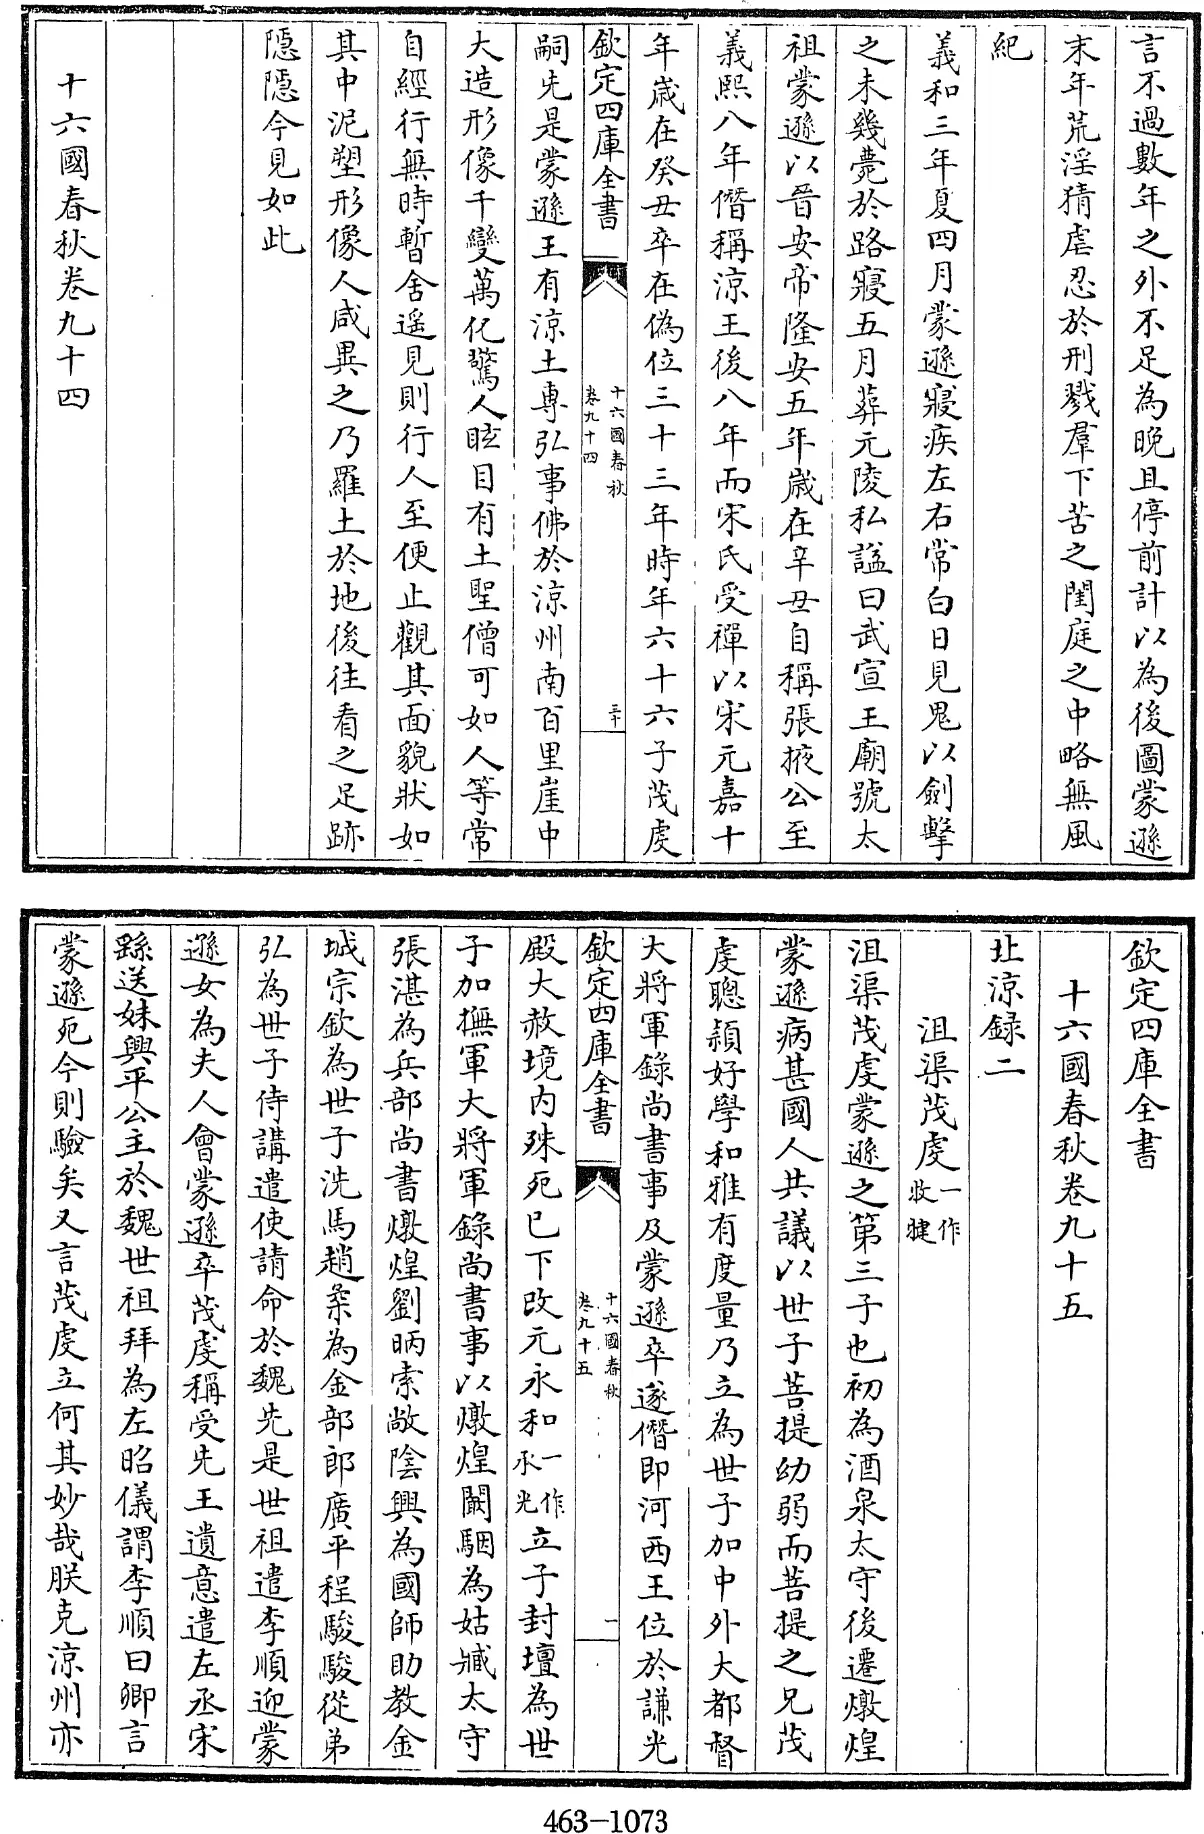 言不過數年之外不足為晚且停前計以為後圖蒙遜
末年荒淫猜虐忍於刑戮羣下苦之閨庭之中略無風
紀
義和三年夏四月蒙遜寢疾左右常白日見鬼以劍擊
之未幾薨於路寢五月葬元陵私諡曰武宣王廟號太
祖蒙遜以晉安帝隆安五年嵗在辛丑自稱張掖公至
義熙八年僭稱涼王後八年而宋氏受禪以宋元嘉十
年嵗在癸丑卒在偽位三十三年時年六十六子茂虔
欽定四庫全書
十六國春秋
卷九十四
三十
嗣先是蒙遜王有涼土專弘事佛於涼州南百里崖中
大造形像千變萬化驚人眩目有土聖僧可如人等常
自經行無時暫舍遥見則行人至便止觀其面貌狀如
其中泥塑形像人咸異之乃羅土於地後往看之足跡
隱隱今見如此
十六國春秋卷九十四
欽定四庫全書
十六國春秋卷九十五
北涼録二
沮渠茂虔一作牧犍
沮渠茂虔蒙遜之第三子也初為酒泉太守後遷燉煌
蒙遜病甚國人共議以世子菩提幼弱而菩提之兄茂
虔聰頴好學和雅有度量乃立為世子加中外大都督
大將軍錄尚書事及蒙遜卒遂僭即河西王位於謙光
欽定四庫全書
十六國春秋
卷九十五
一
殿大赦境内殊死已下改元永和一作承光立子封壇為世
子加撫軍大將軍錄尚書事以燉煌闞駰為姑臧太守
張湛為兵部尚書燉煌劉昞索敞陰興為國師助教金
城宗欽為世子洗馬趙柔為金部郎廣平程駿駿從弟
弘為世子侍講遣使請命於魏先是世祖遣李順迎蒙
遜女為夫人會蒙遜卒茂虔稱受先王遺意遣左丞宋
繇送妹興平公主於魏世祖拜為左昭儀謂李順曰卿言
蒙遜死今則驗矣又言茂虔立何其妙哉朕克涼州亦
463-1073